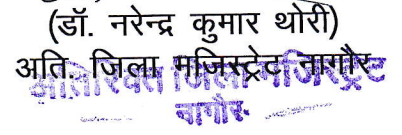 (डॉ. नरेन्द्र कुमार थोरी)
अति. जिला मजिस्ट्रेट नागौर
अतिरिक्त जिला मजिस्ट्रेट
नागौर